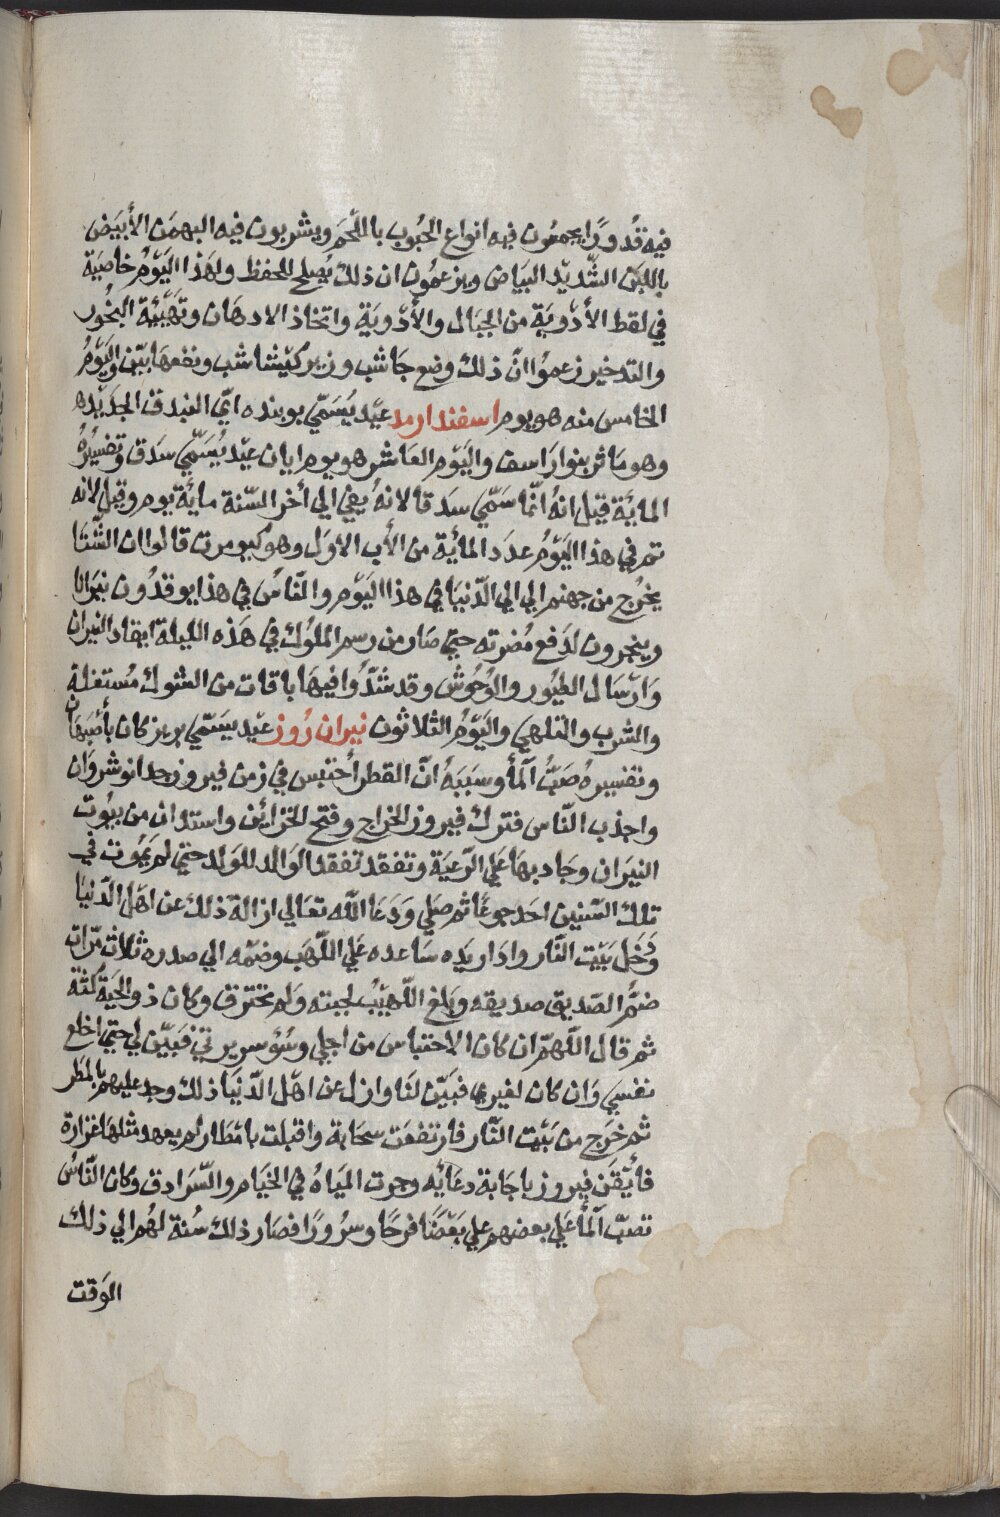 فيه قُدورًا يجمعُون فيه انواع الحُبوب باللّحَم ويشربون فيه البهمَن الأبيَض
باللبَن الشّديْد البيَاض ويزعمُون ان ذلك يُصلح للحفظ ولهَذا اليَوْمُ خاصيَة
في لقط الأدْويَة من الجبَال والأَدْويَة واتخاذ الادهَان وتهَيْئَة البخُور
والتدخين زعموُا انّ ذلك وضع جَاشب وزير كيْشتاشب ونفعهَا بيّن واليَوْمُ
الخامس منه هو يوم اسفندارمد عيْد يُسَمّي بوبنده ايّ البندق الجَديْده
وهو ماثر بنوارَاسف واليَوْم العَاشر هو يوم ابان عيْد يُسَمّي سَدق وتفسيْرُهُ
المائة قيْل انهُ انّما سَمّي سدقا لانهُ يبقي الي أخر السّنة مايُة يوم وقيل لانه
تم في هذا اليَوْمُ عدَد المائة من الأب الاوَل وهو كيومرت قالوا ان الشّتَا
يخرُج من جهنم الي الي الدّنيَا في هذا اليَوْم والنّاسُ في هذا يوقدُون نيرَانا
ويبخرون لدَفع مُضرته حتي صَار من رسم الملُوْك في هَذه الليلة ايقاد النيران
وَارْسَال الطيُور والوُحُوش وقد شَدّوُا فيهَا باقات من الشوك مُستغلة
والشرب والتلهي واليَوْمُ الثلاثون نيران رُوز عيْد يسَمّي بريزكان بأصْبَهَان
وتفسيره صَبُّ المَأ وسَبَبَهُ انّ القطر أحتبس في زمن فيروز جد انوشروَان
واجذب النّاس فترك فيروز الخراج وفتح الخزائن واستدان من بيُوت
النيرَان وجَاد بهَا عَلي الرّعيَة وتفقد تفقد الوَالد للوَلد حتي لم يَمُوت في
تلك السّنين احَد جوعًا ثم صلي وَدَعَا الله تعَالي ازالة ذلك عن اهْل الدّنيَا
وَدَخل بَيْت النّار وادَار يَده سَاعده عَلي اللّهَب وضمّه الي صدره ثلاث مرّات
ضمَّ الصّديق صديقه وبَلغ اللّهيْبُ لحيته وَلم تحترق وكان ذو لحيَة كثة
ثم قال اللّهمّ ان كان الاحتباس من اجلي وسُوء سريرتي فبَيّن لي حتي اخلع
نفسي وَان كان لغيري فبَيّن لنَا وازل عن اهْل الدّنيَا ذلك وجد عليهم بالمَطر
ثم خرَج من بَيْت النّار فارتفعَت سحَابة واقبلت بامْطار لم يعهد مثلهَا غزارة
فأيْقَن فيروز باجَابة دعَائه وجرت الميَاهُ في الخيَام والسّرَادق وكان النّاسُ
تصَبّ المَأ عَلي بعضهم علي بَعْضًا فرحًا وسرُورًا فصَار ذلك سُنة لهُم الي ذلك
الوَقت